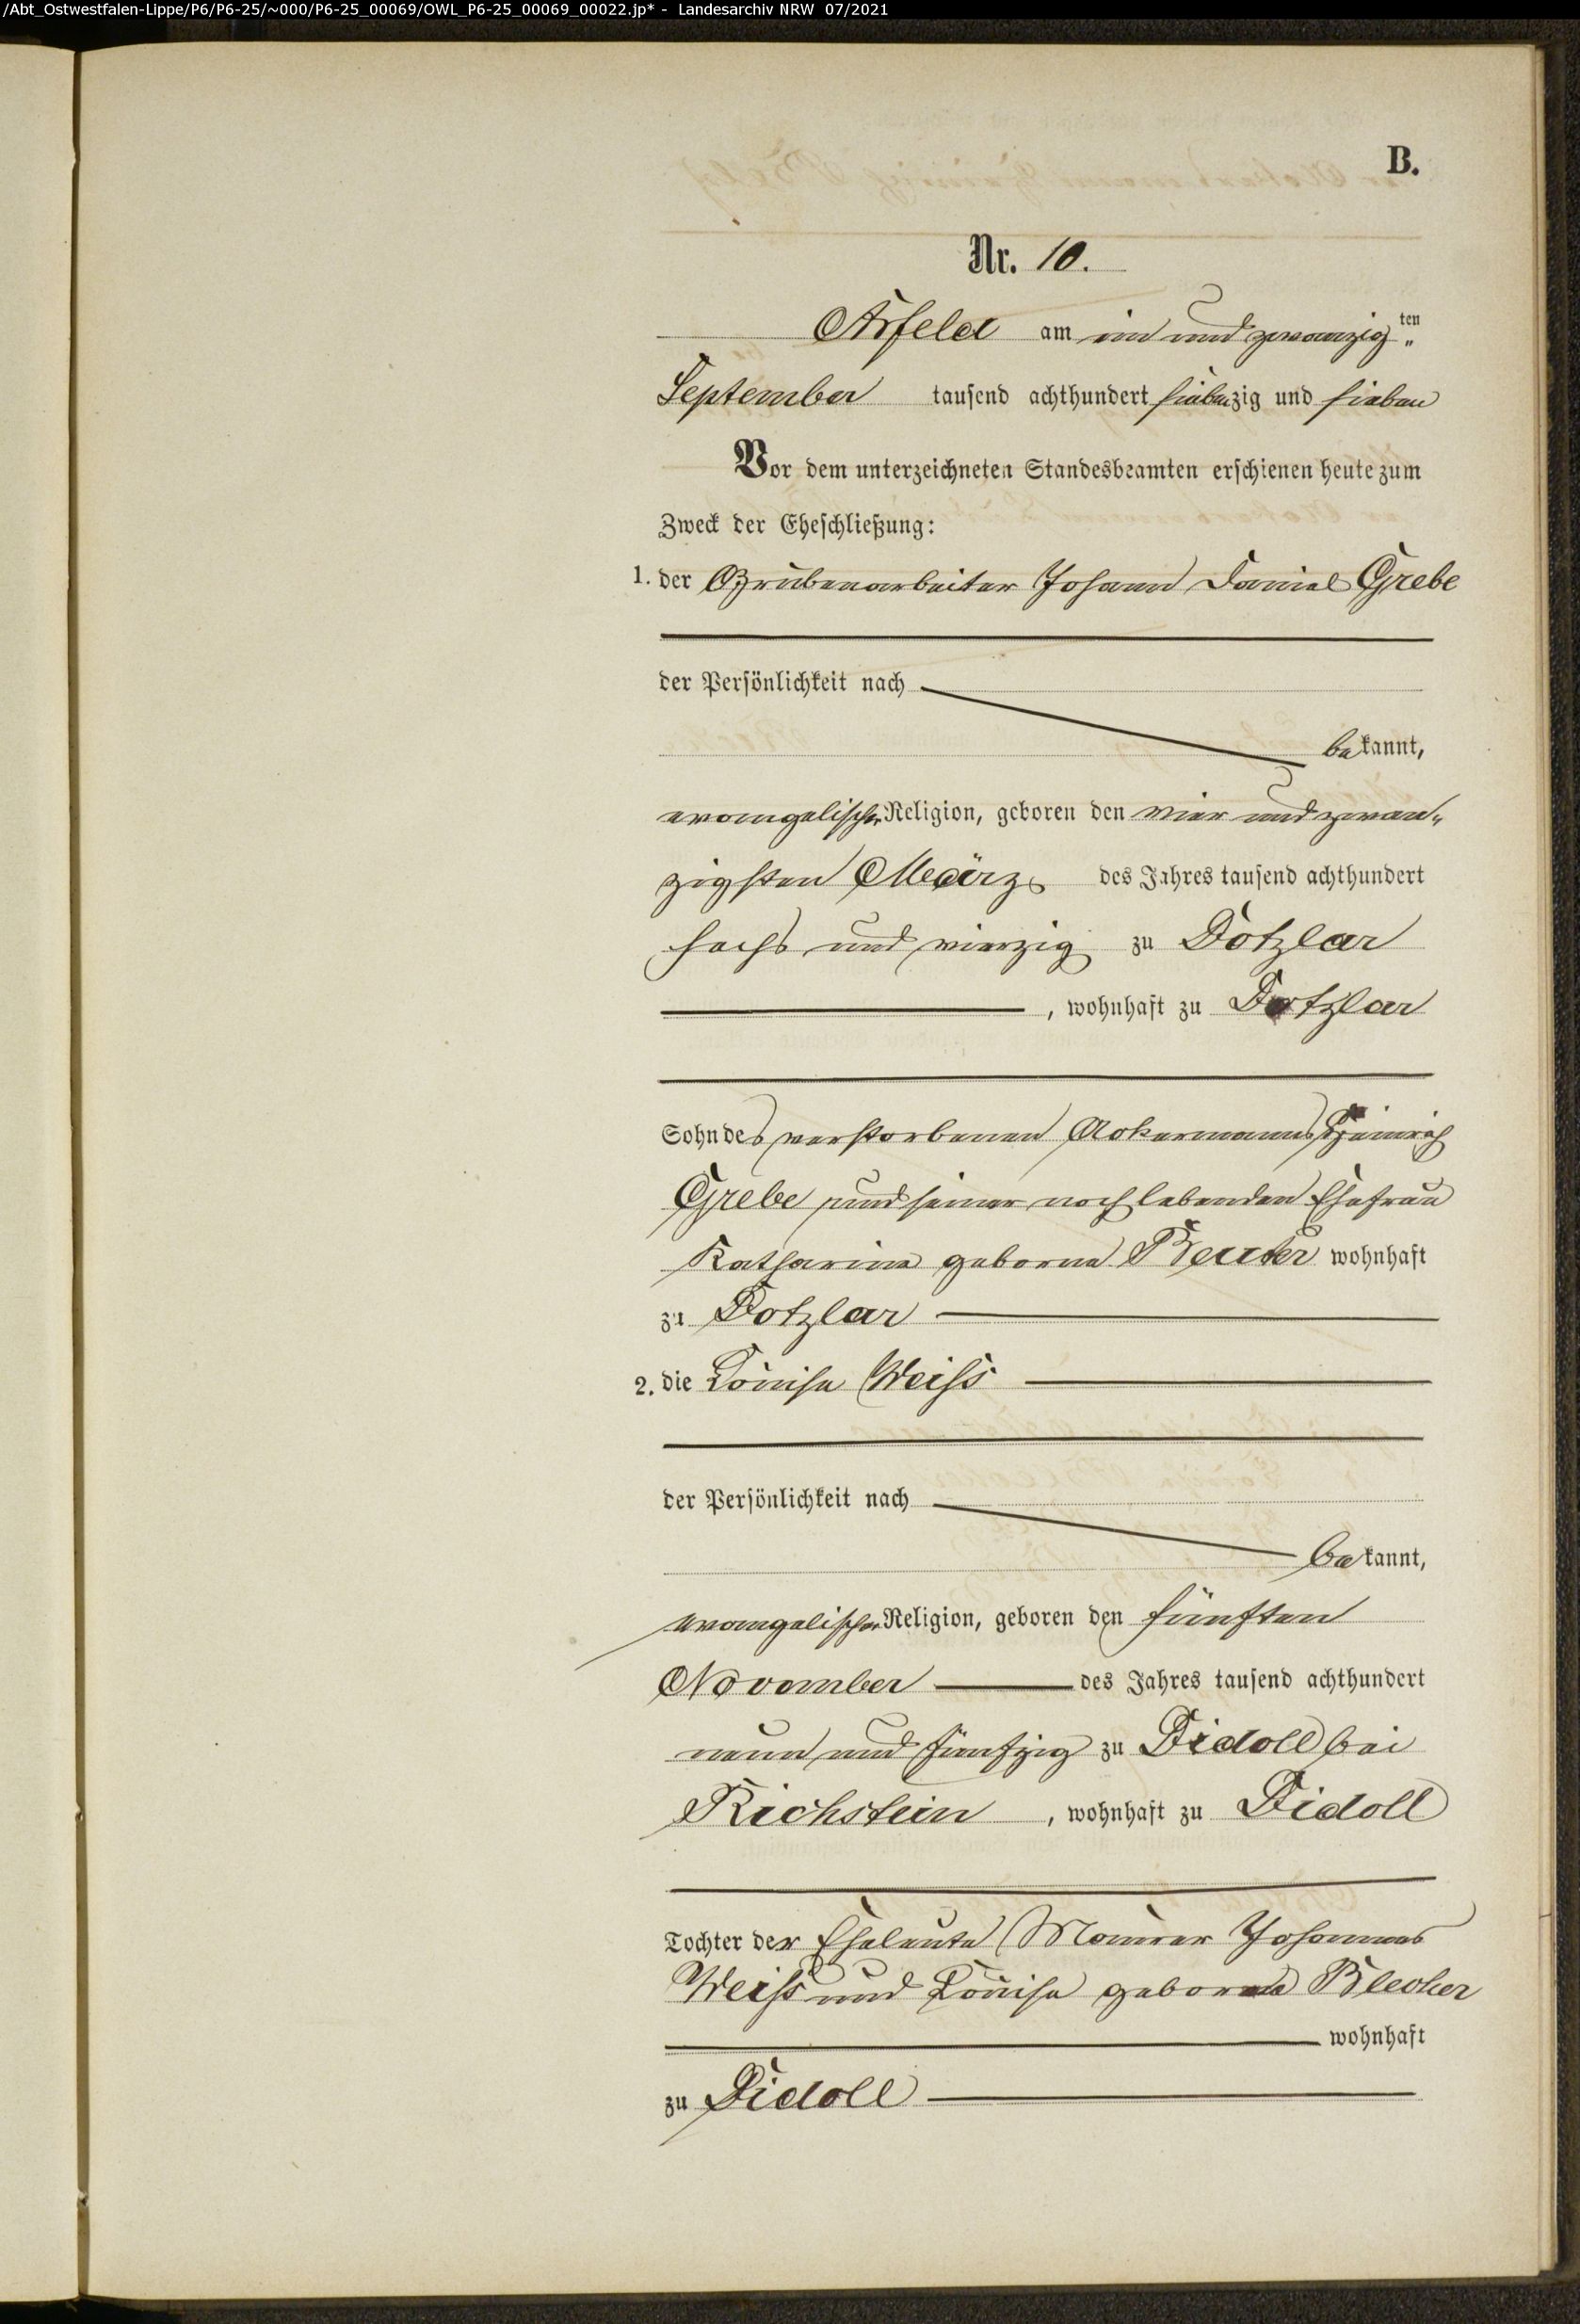 /Abt_Ostwestfalen-Lippe/P6/P6-25/~000/P6-25_00069/OWL_P6-25_00069_00022.jp* - Landesarchiv NRW 07/2021
B.
Nr. 10.
Arfeld am ein und zwanzig ten
September tausend achthundert siebenzig und sieben
Vor dem unterzeichneten Standesbeamten erschienen heute zum
Zweck der Eheschließung:
1. der Grubenarbeiter Johann Daniel Grebe
der Persönlichkeit nach
bekannt,
evangelischer Religion, geboren den vier und zwan„
zigsten März des Jahres tausend achthundert
sechs und vierzig zu Dotzlar
, wohnhaft zu Dotzlar
Sohn des verstorbenen Ackermanns Heinrich
Grebe und seiner noch lebenden Ehefrau
Katharine geborne wohnhaft
zu Dotzlar
2. die Louise Weiß
der Persönlichkeit nach
bekannt,
evangelischer Religion, geboren den fünften
November des Jahres tausend achthundert
neun und fünfzig zu Didoll bei
Richstein , wohnhaft zu Didoll
Tochter der Eheleute Maurer Johannes
Weiß und Louise geborne Blecher
wohnhaft
zu Didoll